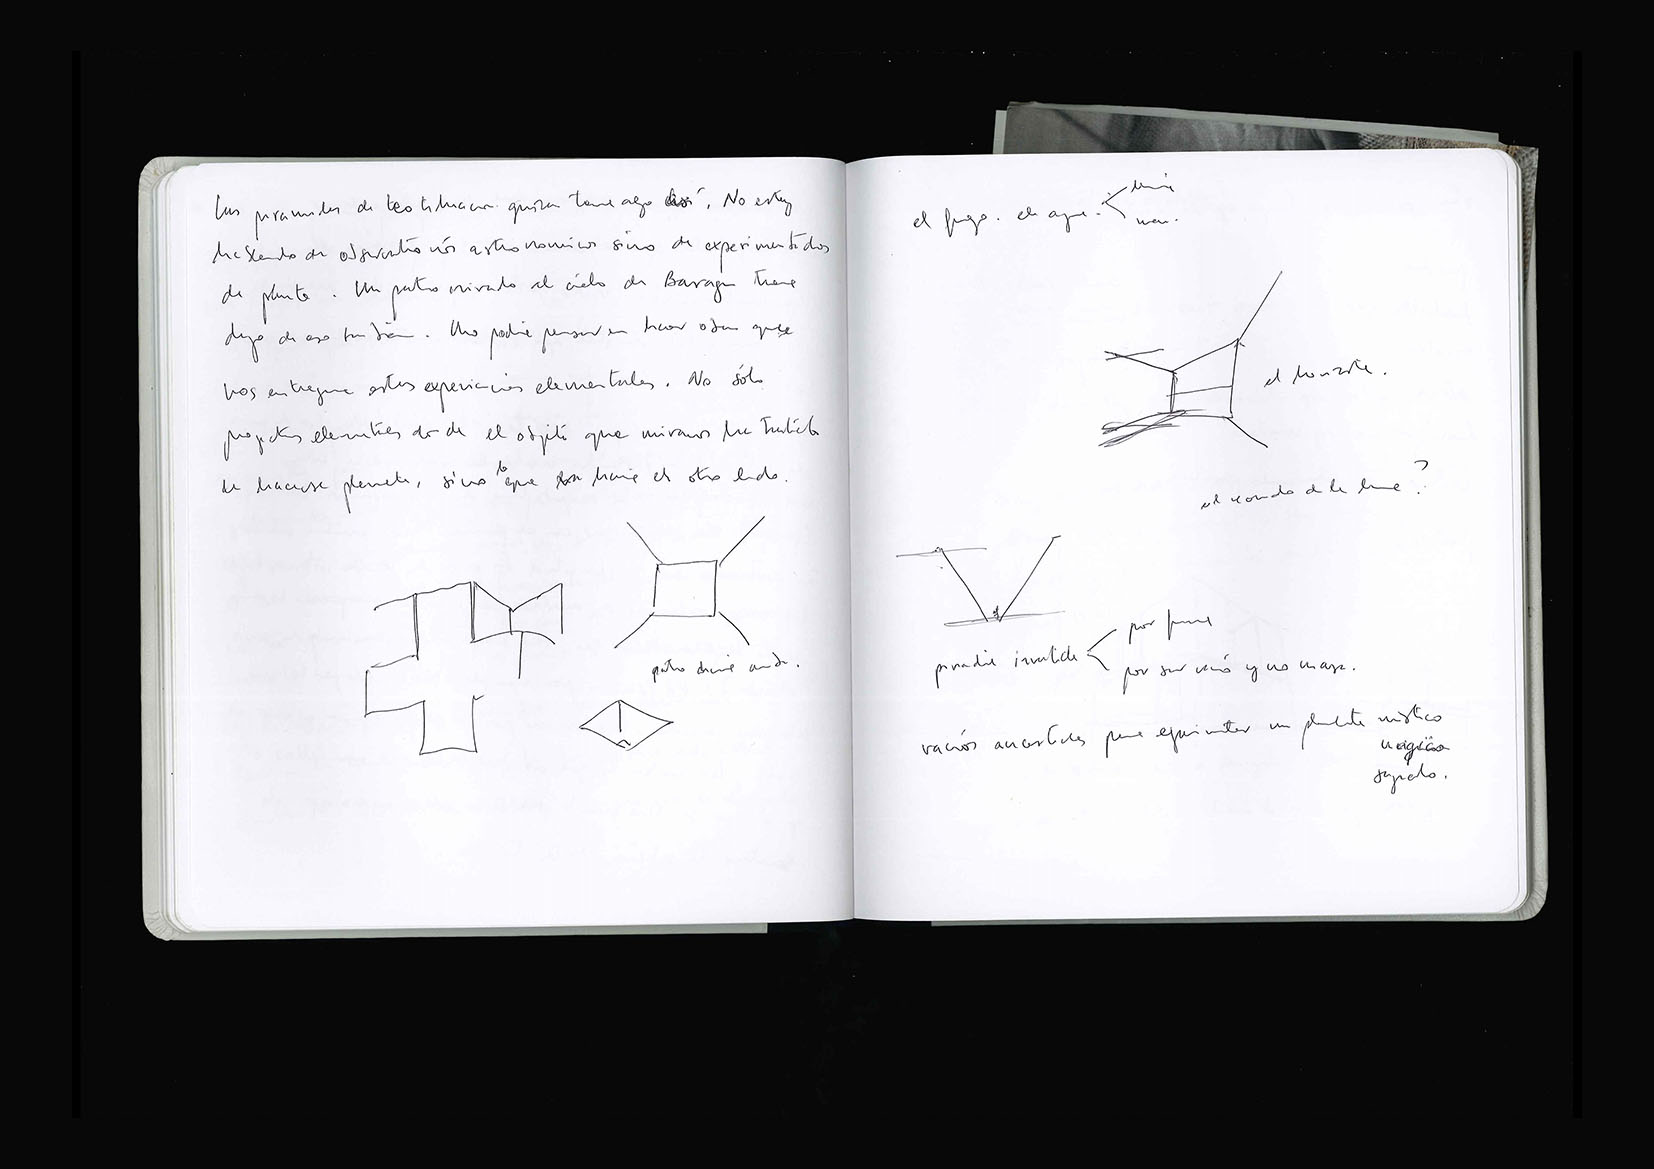 Las piramides de teotihuacan quizas tiene algo así. No estoy
de observatorios astronomicos sino de experimentados
de planeta. Un patio mirando el cielo de Barragan tiene
algo de eso tambien. Uno podria pensar en hacer obras que
nos entregue estas experiencias elementales. No sólo
proyectos elementales donde el objeto que miramos ha tratado
de hacerse planeta, sino lo que hacia el otro lado.
patio
el fuego. el agua.
mar.
el horizonte.
el de la luna?
piramide invertida
por forma
por ser vacio y no masa.
vacios para un místico
mágico
sagrado.